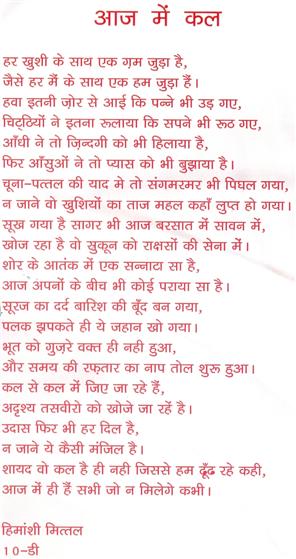 आज में कल
हर खुशी के साथ एक ग़म जुड़ा है,
जैसे हर मैं के साथ एक हम जुड़ा हैं।
हवा इतनी ज़ोर से आई कि पन्ने भी उड़ गए,
चिट्ठियों ने इतना रूलाया कि सपने भी रूठ गए,
आँधी ने तो ज़िन्दगी को भी हिलाया है,
फिर आँसुओं ने तो प्यास को भी बुझाया है।
चूना-पत्तल की याद मे तो संगमरमर भी पिघल गया,
न जाने वो खुशियों का ताज महल कहाँ लुप्त हो गया।
सूख गया है सागर भी आज बरसात में सावन में,
खोज रहा है वो सुकून को राक्षसों की सेना में।
शोर के आतंक में एक सन्नाटा सा है,
आज अपनों के बीच भी कोई पराया सा है।
सूरज का दर्द बारिश की बूँद बन गया,
पलक झपकते ही ये जहान खो गया।
भूत को गुज़रे वक्त ही नही हुआ,
और समय की रफ़तार का नाप तोल शुरू हुआ।
कल से कल में जिए जा रहे हैं,
अदृश्य तसवीरो को खोजे जा रहें है।
उदास फिर भी हर दिल है,
न जाने ये कैसी मंजिल है।
शायद वो कल है ही नही जिससे हम ढूँढ रहे कही,
आज में ही हैं सभी जो न मिलेगे कभी।
हिमांशी मित्तल
10-डी